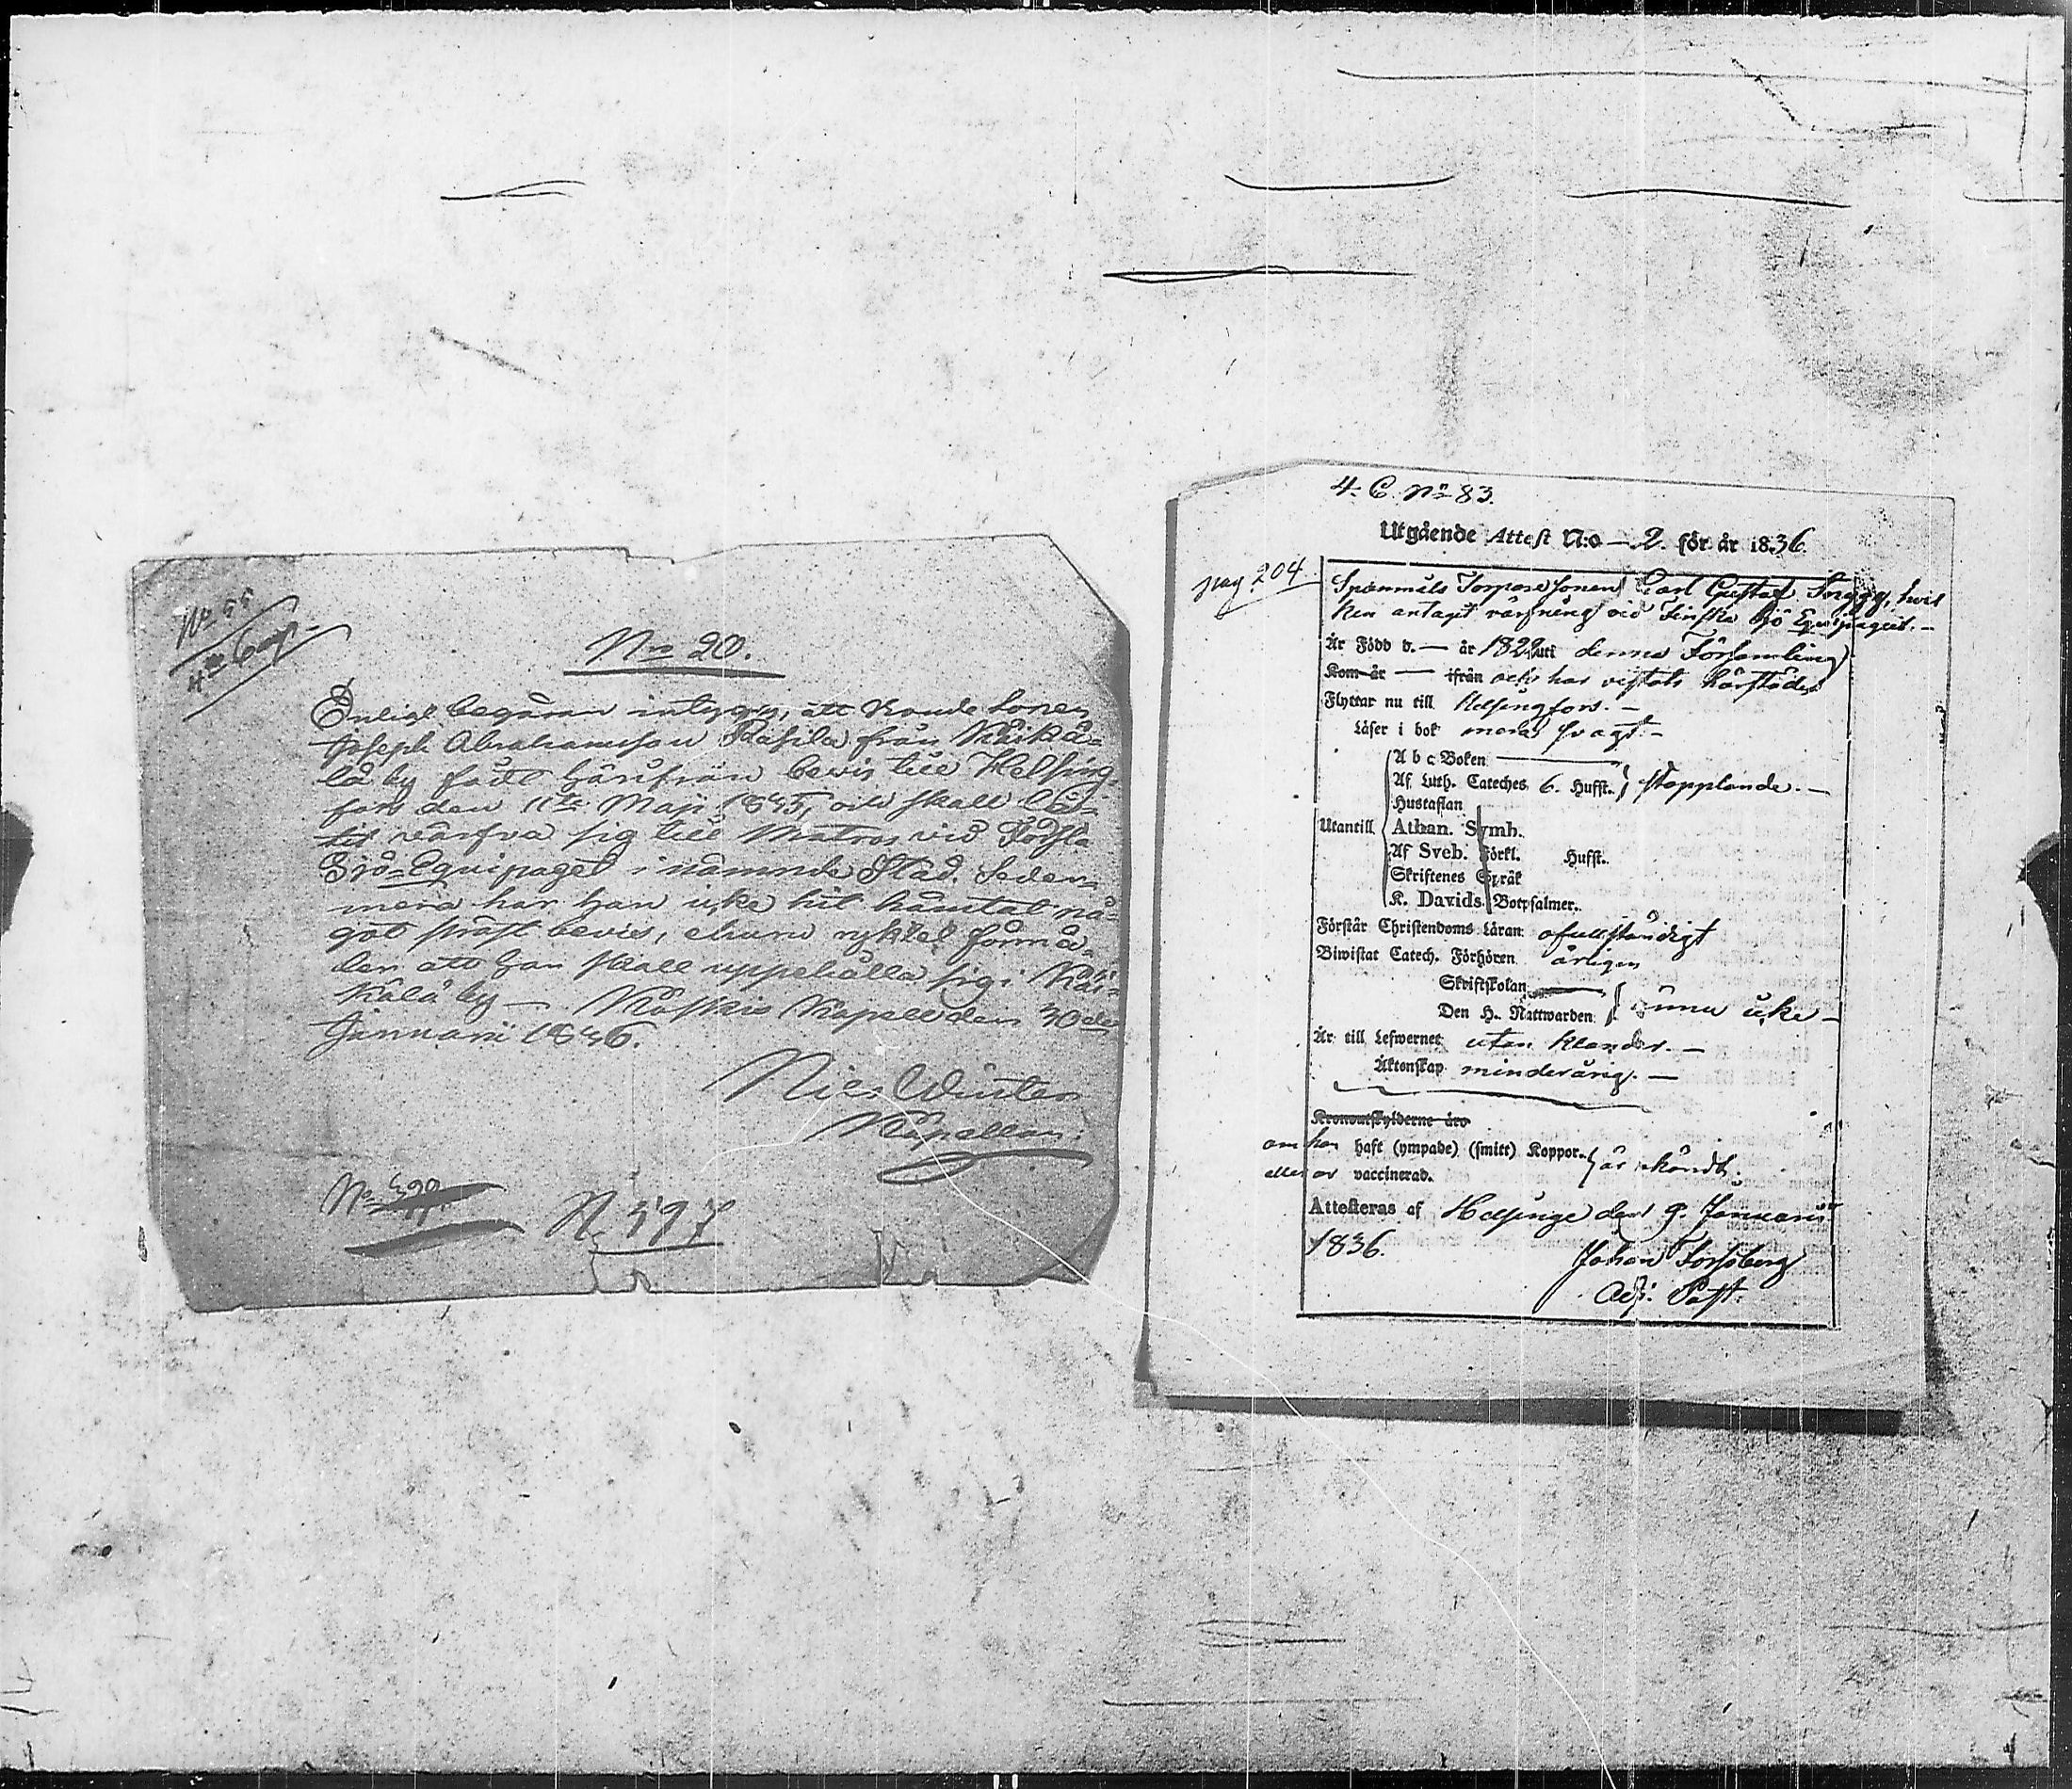 No 55
4de Comp.
Nro 20.
Enligt begäran intygas, att Bonde Sonen
Joseph Abrahamsson Rasila från Käikä=
lä by fådt härifrån bevis till Helsing=
fors den 11te Maji 1835, och skall
värfva sig till Matros vid Första
Sjö=Equipaget i nämnde Stad. Seder=
mera har han icke hit hämtat nå=
got präst bevis, ehuru ryktet förmä=
ler att han skall uppehålla sig i Käi=
kälä by — Koskis Kapell den 30de
Januari 1836.
Nils Winter
Kapellan.
No
N. 597
4. C. No 83.
Utgående Attest N:o — 2. för år 1836.
pag. 204
Torpare Sonen Carl Gustaf hvil
ken antagit värfning vid Finska Sjö Equipaget. —
Är Född d. — år 1822 uti denna Församling
Kom år — ifrån och har vistats härstädes
Flyttar nu till Helsingfors. —
Läser i bok svagt. —
A b c Boken —
Af Luth. Cateches 6. Hufst. stapplande. —
Hustaflan
Utantill Athan. Symb.
Af Sveb. Förkl. Hufst.
Skriftenes Språk
K. Davids Botpsalmer.
Förstår Christendoms Läran ofullständigt
Biwistat Catech. Förhören årligen
Skriftskolan
Den H. Nattwarden ännu icke —
Är till Lefwernet utan klander. —
Äktenskap minderårig. —
Kronoutskylderne äro
om han haft (ympade) (smitt) Koppor
eller är vaccinerad. är okändt.
Attesteras af Helsinge den 9. Januarii
1836.
Johan Forsberg
Adj. Past.